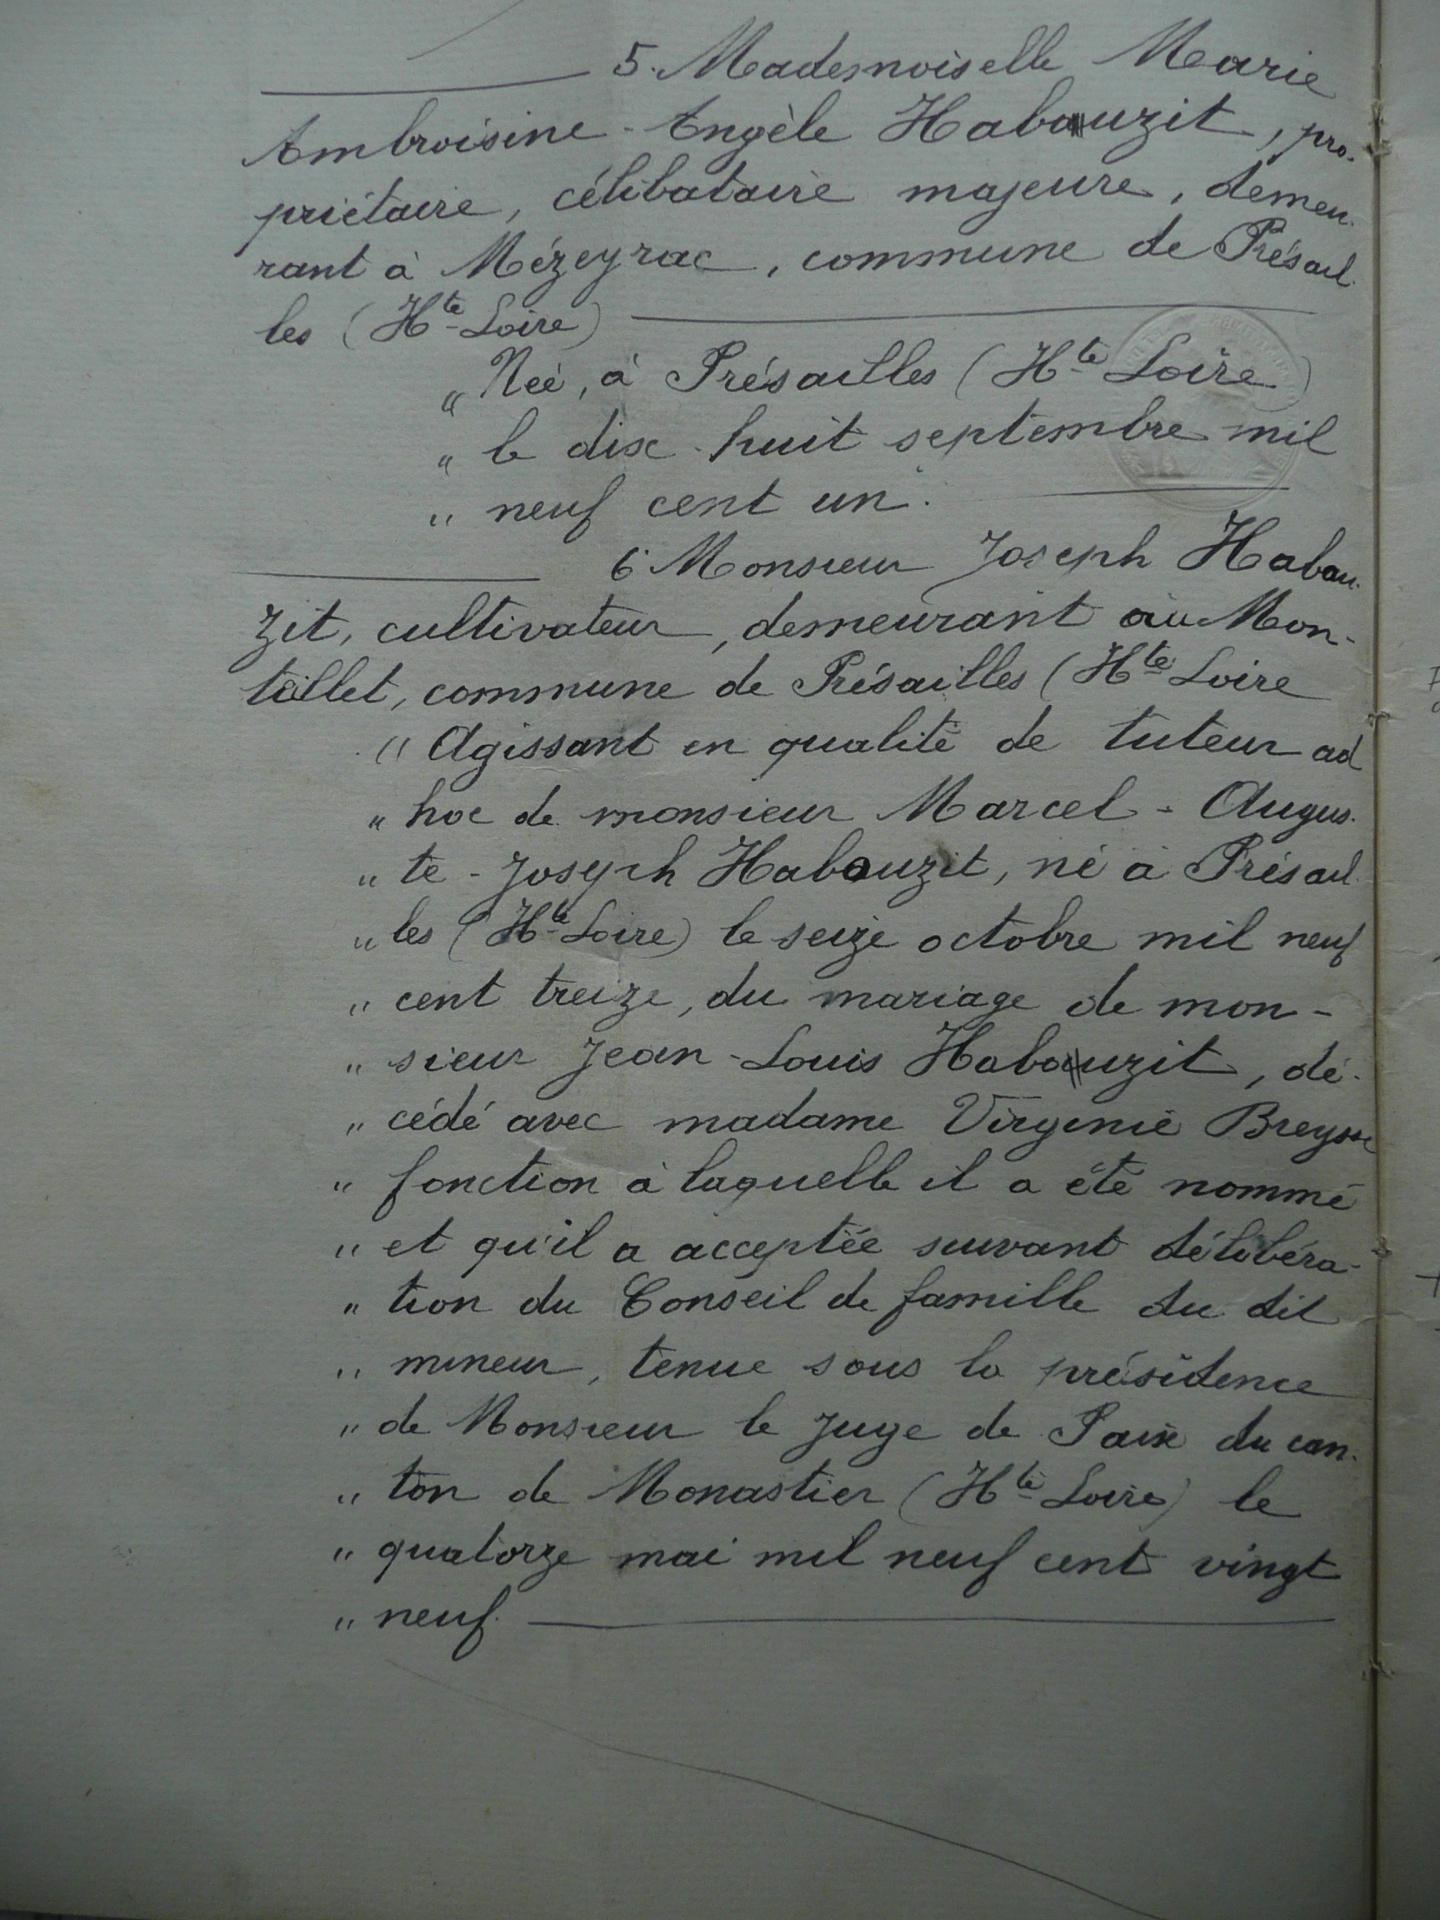 5. Mademoiselle Marie
Ambroisine-Angèle Habauzit, pro-
priétaire, célibataire majeure, demeu-
rant à Mézeyrac, commune de Présail-
les (Hte-Loire)
" Née, à Présailles (Hte Loire)
" le dix-huit septembre mil
" neuf cent un.
6. Monsieur Joseph Habau-
zit, cultivateur, demeurant au Mon-
teillet, commune de Présailles (Hte Loire
" Agissant en qualité de tuteur ad
" hoc de monsieur Marcel-Augus-
" te-Joseph Habouzit, né à Présail-
" les (Hte Loire) le seize octobre mil neuf
" cent treize, du mariage de mon-
" sieur Jean-Louis Habauzit, dé-
" cédé avec madame Virginie Breysse
" fonction à laquelle il a été nommé
" et qu'il a acceptée suivant délibéra-
" tion du Conseil de famille du dit
" mineur, tenue sous la présidence
" de Monsieur le Juge de Paix du can-
" ton de Monastier (Hte Loire) le
" quatorze mai mil neuf cent vingt
" neuf.